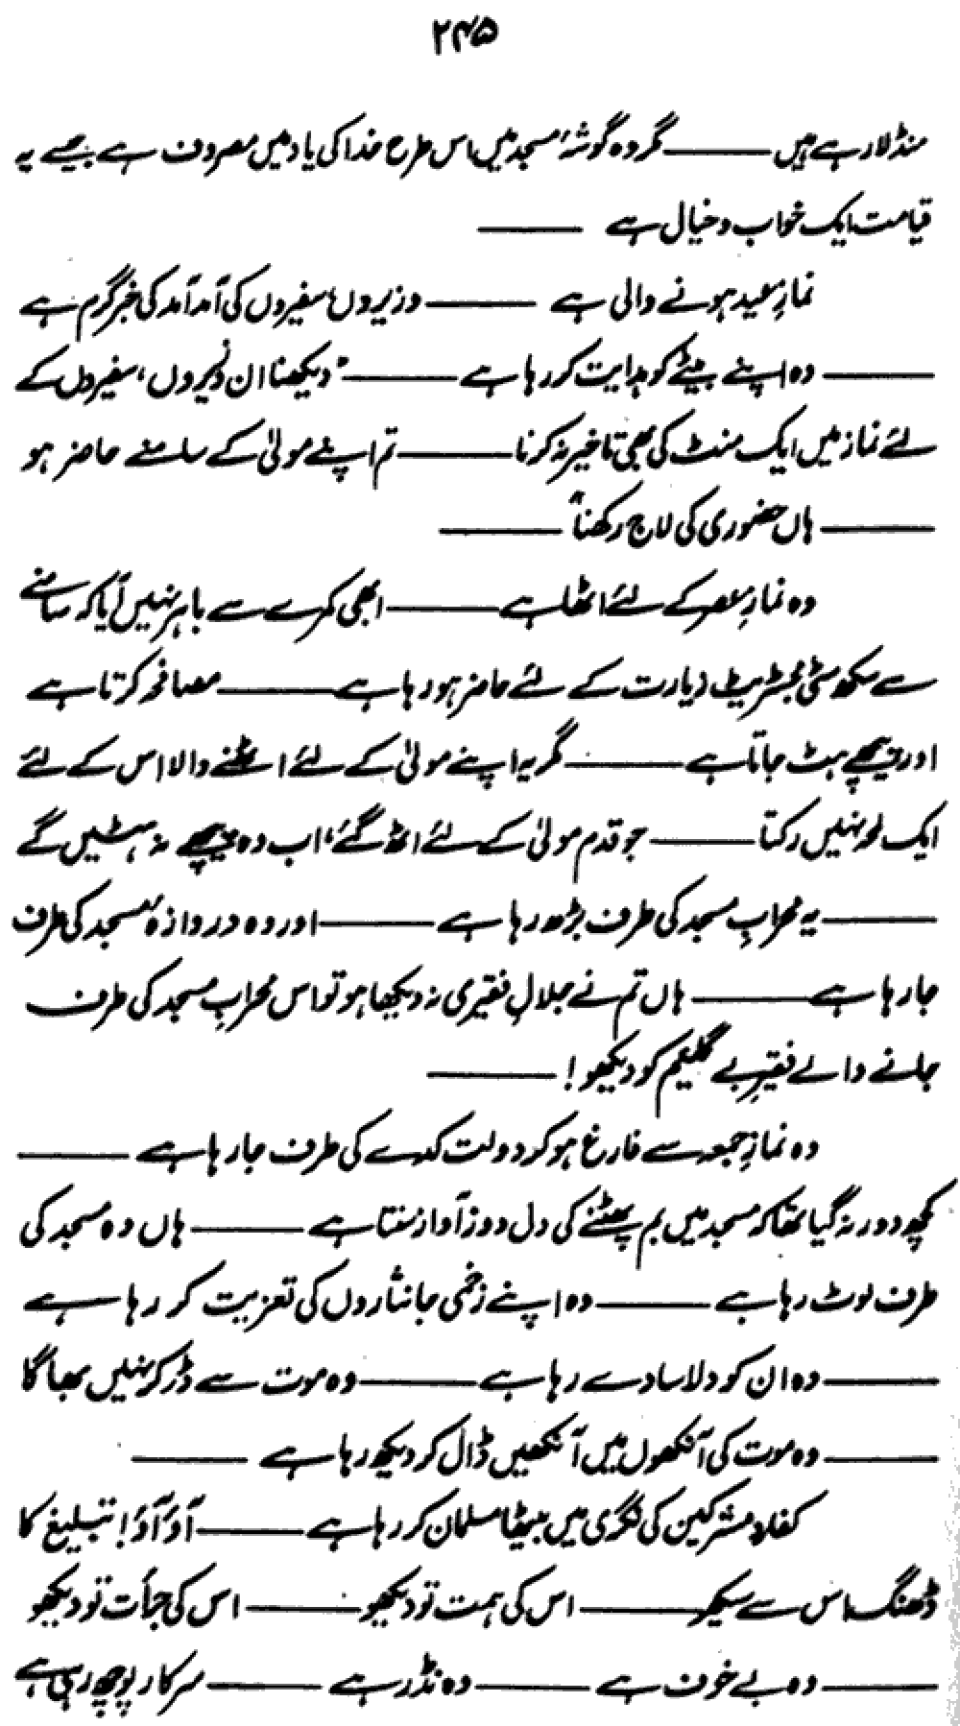 ۲۴۵
منڈلا رہے ہیں ——— مگر وہ گوشۂ مسجد میں اس طرح خدا کی یاد میں مصروف ہے جیسے یہ
قیامت ایک خواب و خیال ہے ———
نمازِ عید ہونے والی ہے ——— وزیروں، سفیروں کی آمد آمد کی خبر گرم ہے
——— وہ اپنے بیٹے کو ہدایت کر رہا ہے ——— "دیکھنا ان وزیروں، سفیروں کے
لئے نماز میں ایک منٹ کی بھی تاخیر نہ کرنا ——— تم اپنے مولیٰ کے سامنے حاضر ہو
——— ہاں حضوری کی لاج رکھنا" ———
وہ نمازِ عصر کے لئے اٹھا ہے ——— ابھی کمرے سے باہر نہیں آیا کہ سامنے
سے سکھ سٹی مجسٹریٹ زیارت کے لئے حاضر ہو رہا ہے ——— مصافحہ کرتا ہے
اور پیچھے ہٹ جاتا ہے ——— مگر یہ اپنے مولیٰ کے لئے اٹھنے والا اس کے لئے
ایک لمحہ نہیں رکتا ——— جو قدم مولیٰ کے لئے اٹھ گئے، اب وہ پیچھے نہ ہٹیں گے
——— یہ محرابِ مسجد کی طرف بڑھ رہا ہے ——— اور وہ دروازۂ مسجد کی طرف
جا رہا ہے ——— ہاں تم نے جلالِ فقیری نہ دیکھا ہو تو اس محرابِ مسجد کی طرف
جانے والے فقیرِ بے گلیم کو دیکھو! ———
وہ نمازِ جمعہ سے فارغ ہو کر دولت کدے کی طرف جا رہا ہے ———
کچھ دور نہ گیا تھا کہ مسجد میں بم پھٹنے کی دل دوز آواز سنتا ہے ——— ہاں وہ مسجد کی
طرف لوٹ رہا ہے ——— وہ اپنے زخمی جانثاروں کی تعزیت کر رہا ہے
——— وہ ان کو دلاسا دے رہا ہے ——— وہ موت سے ڈر کر نہیں بھاگا
——— وہ موت کی آنکھوں میں آنکھیں ڈال کر دیکھ رہا ہے ———
کفار و مشرکین کی نگری میں بیٹھا مسلمان کر رہا ہے ——— آؤ آؤ! تبلیغ کا
ڈھنگ اس سے سیکھو ——— اس کی ہمت تو دیکھو ——— اس کی جرأت تو دیکھو
——— وہ بے خوف ہے ——— وہ نڈر ہے ——— سرکار پوچھ رہی ہے